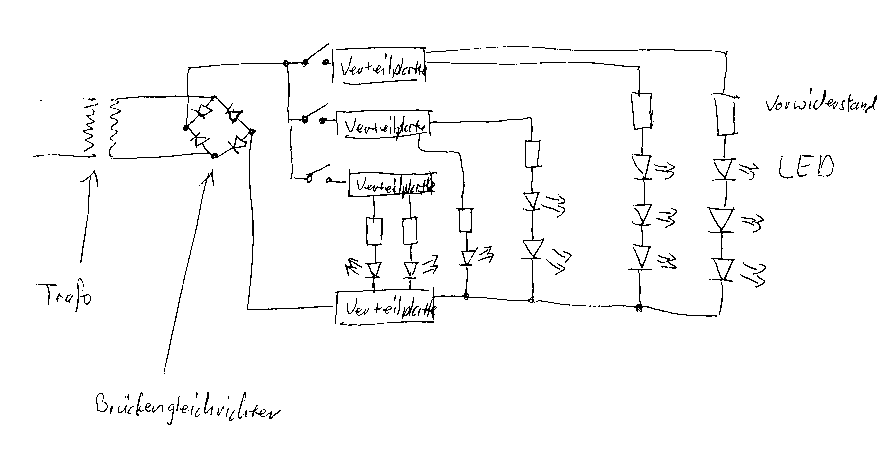 Verteilplatte
Vorwiderstand
Verteilplatte
LED
Verteilplatte
Trafo
Verteilplatte
Brückengleichrichter